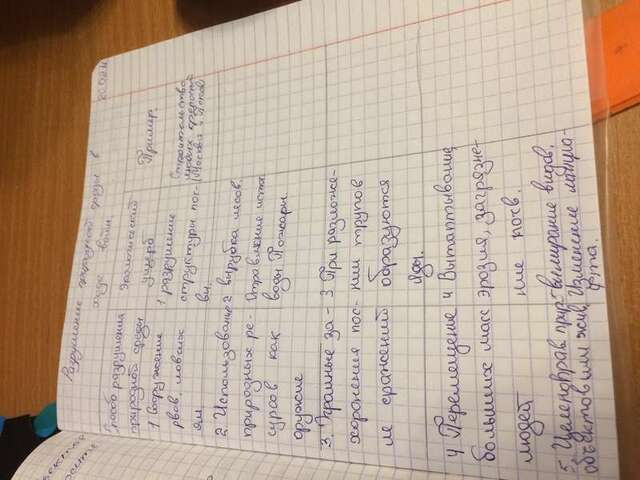 Разрушение природной среды в
ходе войн.
Способ разрушения
природной среды
Экологический
ущерб
Пример.
1 вооружение
рвов, ловчих
ям.
1 разрушение
структуры поч-
вы.
Строительство
любых крепостей
(Москва и Псков)
2. Использование
природных ре-
сурсов как
оружие
2 вырубка лесов.
Отравление исто
воды. Пожары.
3. Огромные за-
хоронения пос-
ле сражений
3 При разложе-
нии трупов
образуются
яды.
4 Перемещение
больших масс
людей
4 Вытаптывание
эрозия, загрязне-
ние почв.
5. Целенаправ прир-
объектов или жив.
вымирание видов.
Изменение ландша-
фта.